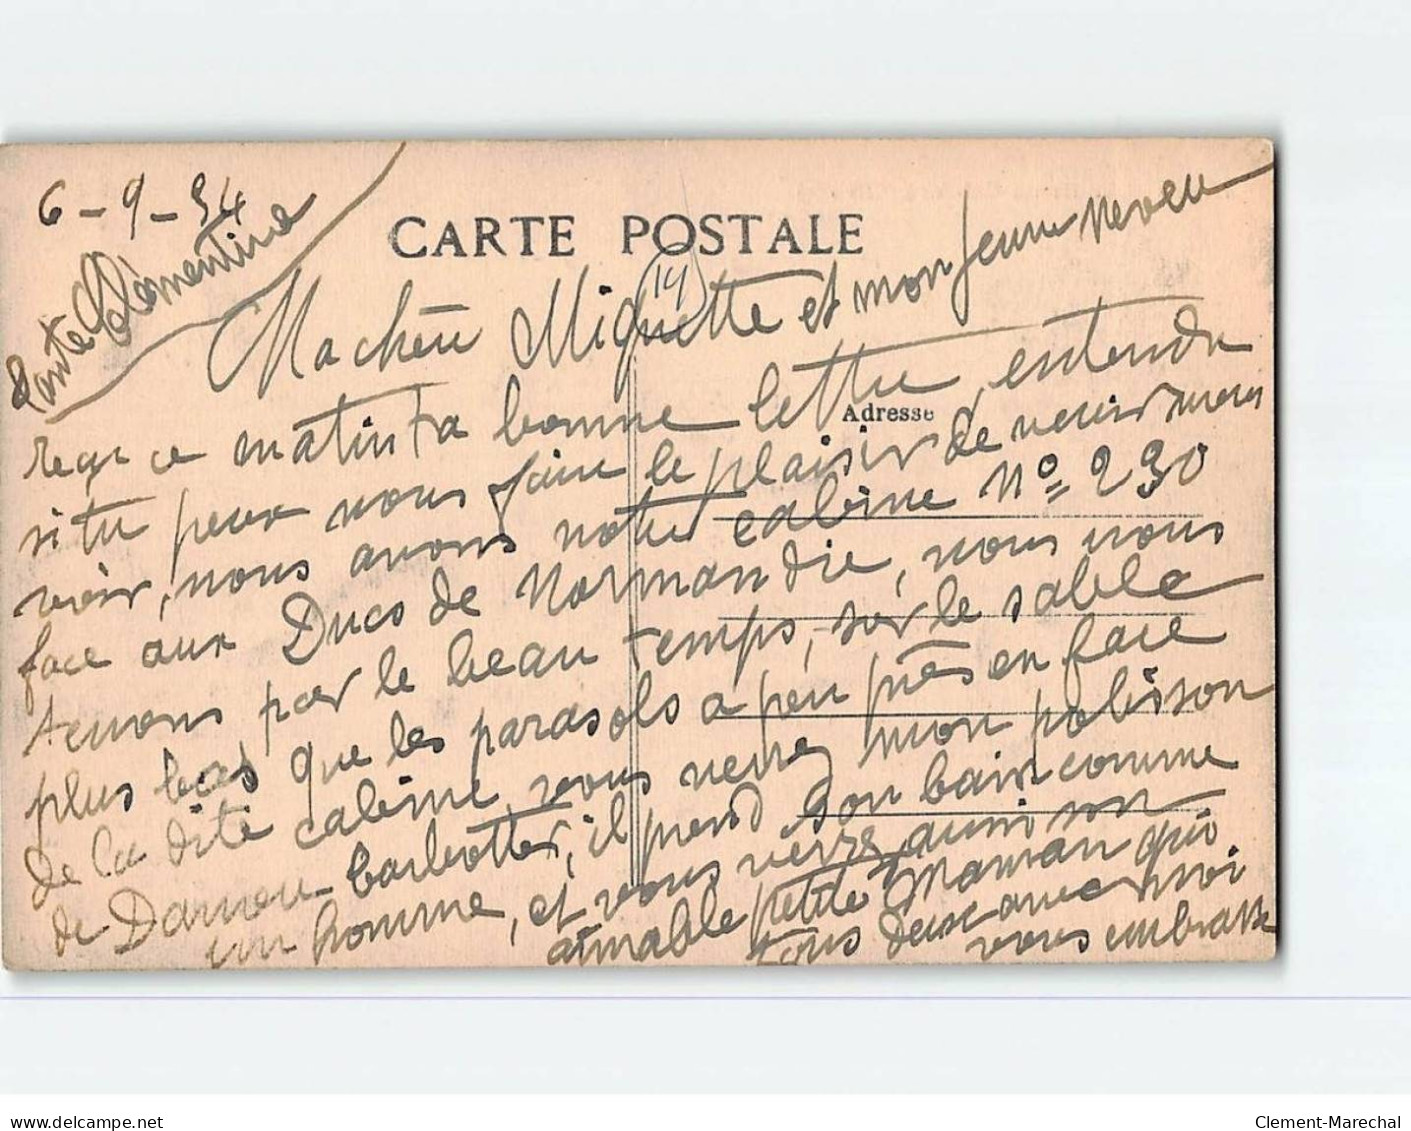 6-9-34
Tante Clémentine
CARTE POSTALE
14
Ma chère Miquette et mon jeune neveu
Adresse
reçu ce matin ta bonne lettre, entendu
si tu peux nous faire le plaisir de venir nous
voir, nous avons notre cabine No 230
face aux Ducs de Normandie, nous nous
tenons, par le beau temps, sur le sable
plus bas que les parasols a peu près en face
de la dite cabine, vous verrez mon polisson
de barbotter, il prend son bain comme
un homme, et vous verrez aussi son
aimable petite Maman qui
tous deux avec moi
vous embrasse
delcampe.net
Clement-Marechal